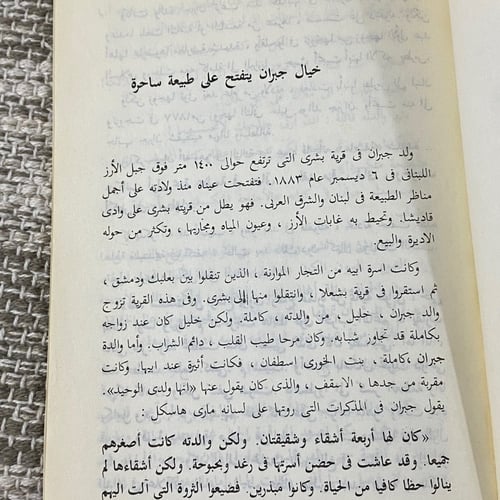 خيال جبران يتفتح على طبيعة ساحرة
ولد جبران فى قرية بشرى التى ترتفع حوالى ١٤٠٠ متر فوق جبل الأرز
اللبنانى فى ٦ ديسمبر عام ١٨٨٣. فتفتحت عيناه منذ ولادته على أجمل
مناظر الطبيعة فى لبنان والشرق العربى. فهو يطل من قريته بشرى على وادى
قاديشا. وتحيط به غابات الأرز ، وعيون المياه ومجاريها ، وتكثر من حوله
الاديرة والبيع.
وكانت اسرة ابيه من التجار الموارنة ، الذين تنقلوا بين بعلبك ودمشق ،
ثم استقروا فى قرية بشعلا ، وانتقلوا منها إلى بشرى. وفى هذه القرية تزوج
والد جبران ، خليل ، من والدته ، كاملة. ولكن خليل كان عند زواجه
بكاملة قد تجاوز شبابه. وكان مرحا طيب القلب ، دائم الشراب. وأما والدة
جبران ،كاملة ، بنت الخورى اسطفان ، فكانت أثيرة عند ابيها. وكانت
مقربة من جدها ، الاسقف ، والذى كان يقول عنها «انها ولدى الوحيد».
يقول جبران فى المذكرات التى روتها على لسانه مارى هاسكل :
«كان لها أربعة أشقاء وشقيقتان. ولكن والدته كانت أصغرهم
جميعا. وقد عاشت فى حضن أسرتها فى رغد وبحبوحة. ولكن أشقاءها لم
ينالوا حظا كافيا من الحياة. وكانوا مبذرين. فضيعوا الثروة التى آلت اليهم